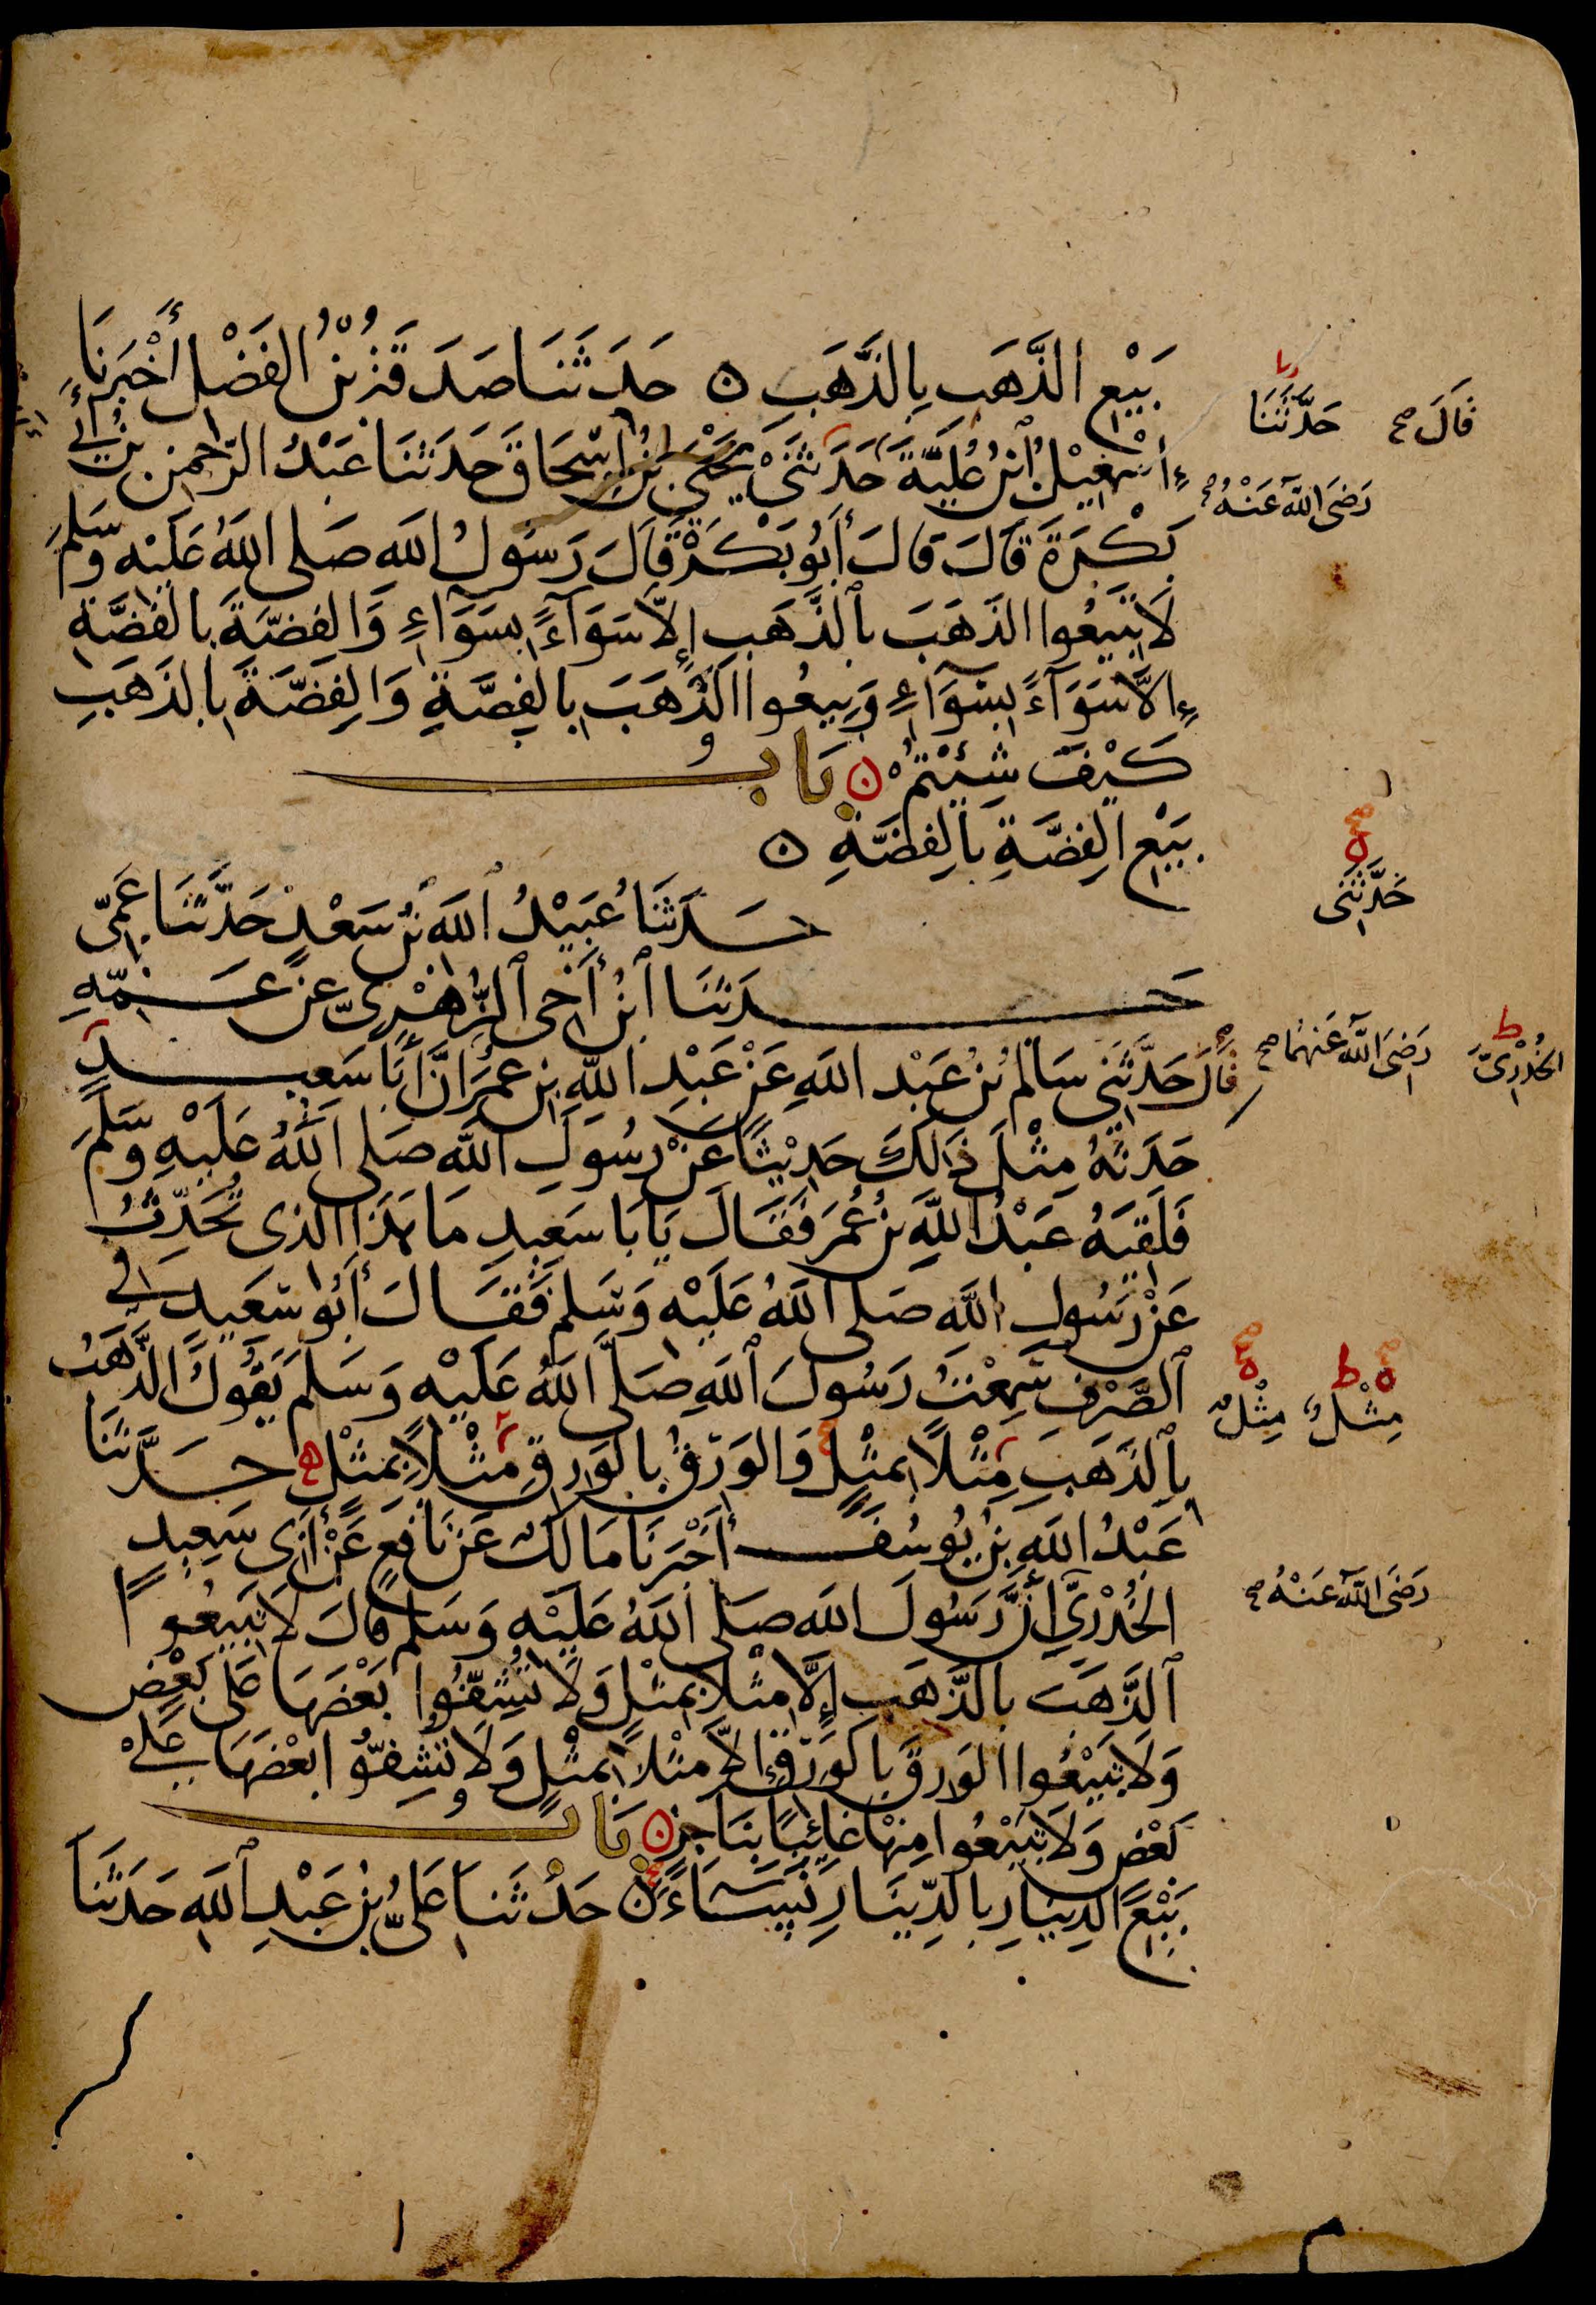 بَيْعِ الذَّهَبِ بِالذَّهَبِ ۝ حَدَثَنَا صَدَقَةُ بْنُ الفَضْلِ أَخْبَرَنَا
إِسْمٰعِيْلُ ابْنُ عُلَيَّةَ حَدَثَنِيْ يَحْيَى بْنُ إِسْحَاقَ حَدَثَنَا عَبْدُ الرَّحْمٰنِ بْنُ أَبِي
بَكْرَةَ قَالَ قَالَ أَبُو بَكْرَةَ قَالَ رَسُولُ اللّهِ صَلى اللّهُ عَلَيْهِ وَسَلمَ
لَا تَبِيعُوا الذَهَبَ بِالذَّهَبِ إِلاّ سَوَآءً بِسَوَآءٍ وَالفِضّةَ بِالفِضَّةِ
إِلاَّ سَوَآءً بِسَوَآءٍ وَبِيعُوا الذَّهَبَ بِالفِضَّةِ وَالفِضّةَ بِالذَهَبِ
كَيْفَ شِئْتُمْ ۝ بَابُ
بَيْعِ الفِضَّةِ بِالفِضَّةِ ۝
حَدَثَنَا عُبَيْدُ اللّهِ بْنُ سَعْدٍ حَدَّثَنَا عَمِّى
حَدَثَنَا ابْنُ أَخِى الزُّهْرِىِّ عَنْ عَمِّهِ
قَالَ حَدَّثَنِي سَالِمُ بْنُ عَبْدِ اللّهِ عَنْ عَبْدِ اللّهِ بْنِ عُمَرَ أَنَّ أَبَا سَعِيدٍ
حَدَثَهُ مِثْلَ ذَالِكَ حَدِيْثًا عَنْ رَسُولِ اللّهِ صَلى اللّهُ عَلَيْهِ وَسَلَّمَ
فَلَقِيَهُ عَبْدُ اللّهِ بْنُ عُمَرَ فَقَالَ يَا بَا سَعِيدٍ مَا هَذَا الذى تُحَدِّثُ
عَنْ رَسُولِ اللّهِ صَلى اللّهُ عَلَيْهِ وَسَلم فَقَالَ أَبُو سَعِيدٍ فِي
الصَّرْفِ سَمِعْتُ رَسُولَ اللّهِ صَلّى اللّهُ عَلَيْهِ وَسَلمَ يَقُولُ الذَّهَبُ
بِالذَهَبِ مِثْلًا بِمِثْلٍ وَالوَرِقُ بِالوَرِقِ مِثْلًا بِمِثْلٍ حَدَّثَنَا
عَبْدُ اللّهِ بْنُ يُوسُفَ أَخْبَرَنَا مَالكٌ عَنْ نَافِعٍ عَنْ أَبِى سَعِيدٍ
الخُدْرِيِّ أَنَّ رَسُولَ اللّهِ صَلى اللّهُ عَلَيْهِ وَسَلم قَالَ لَا تَبِيعُوا
الذَّهَبَ بِالذَّهَبِ إِلَّا مِثْلًا بِمِثْلٍ وَلَا تُشِفّوُا بَعْضَهَا عَلى بَعْضٍ
وَلَا تَبِيْعُوا الوَرِقَ بِالوَرِقِ إِلاَّ مِثْلًا بِمِثْلٍ وَلَا تُشِفوُّا بَعْضَهَا عَلَى
بَعْضٍ وَلَا تَبِيْعُوا مِنْهَا غَائِبًا بِنَاجِزٍ ۝ بَابُ
بَيْعِ الدِينَارِ بِالدِّينَارِ نَسَاءً ۝ حَدَثَنَا عَلىُّ بْنُ عَبْدِ اللّهِ حَدَثَنَا
قَالَ صح
حَدَّثَنَا
رَضىَ اللّهُ عَنْهُ صح
حَدَّثَنِى
الخُدْرِىَّ
رَضىَ اللّهُ عَنهُمَا صح
مِثْلٌ
مِثْلٌ
رَضىَ اللّهُ عَنْهُ صح